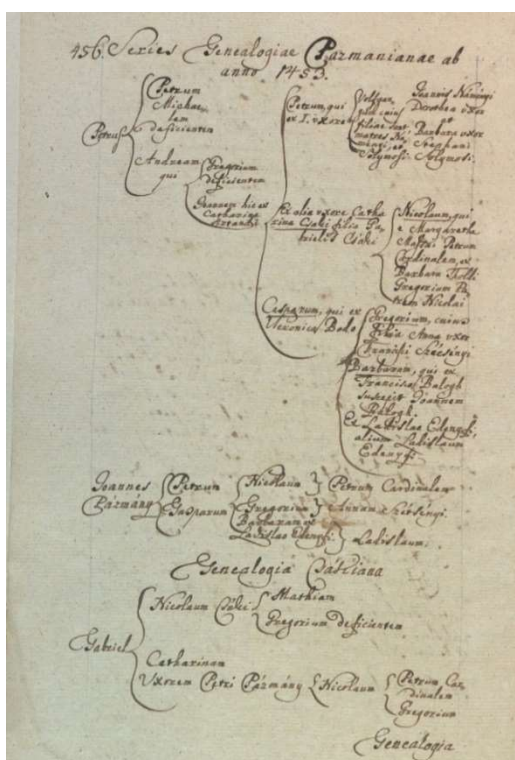 456. Series Genealogiae Pazmanianae ab
anno 1453.
Petrus
Petrum
Michae-
lem
deficientem
Andream
qui
Gregorium
deficientem
Joannem hic ex
Catharina
Petrum, qui
ex I. uxore
filiae sunt
matres
et
Solymosi
Joannis
Dorothea uxor
et
Barbara uxor
Stephani
Solymosi.
Ex alia uxore Catha
rina Csaki filia Ga-
brielis Csaki
Nicolaum, qui
e Margaretha
Massai Petrum
Cardinalem, ex
Barbara
Gregorium Pa-
trem Nicolai
Casparum, qui ex
Veronica Bodo
Gregorium, cuius
filia Anna uxor
Francisci Szécsingi
Barbaram, qui ex
Francisco Balogh
suscepit Joannem
Balogh.
Ex Ladislao
Ladislaum
Joannes
Pázmány
Petrum
Gasparum
Nicolaum
Gregorium
Barbaram ex
Ladislao
Petrum Cardinalem
Annam
Ladislaum.
Genealogia Csákiana
Gabriel
Nicolaum Csáki
Mathiam
Gregorium deficientem
Catharinam
Uxorem Petri Pázmány
Nicolaum
Petrum Car-
dinalem
Gregorium
Genealogia